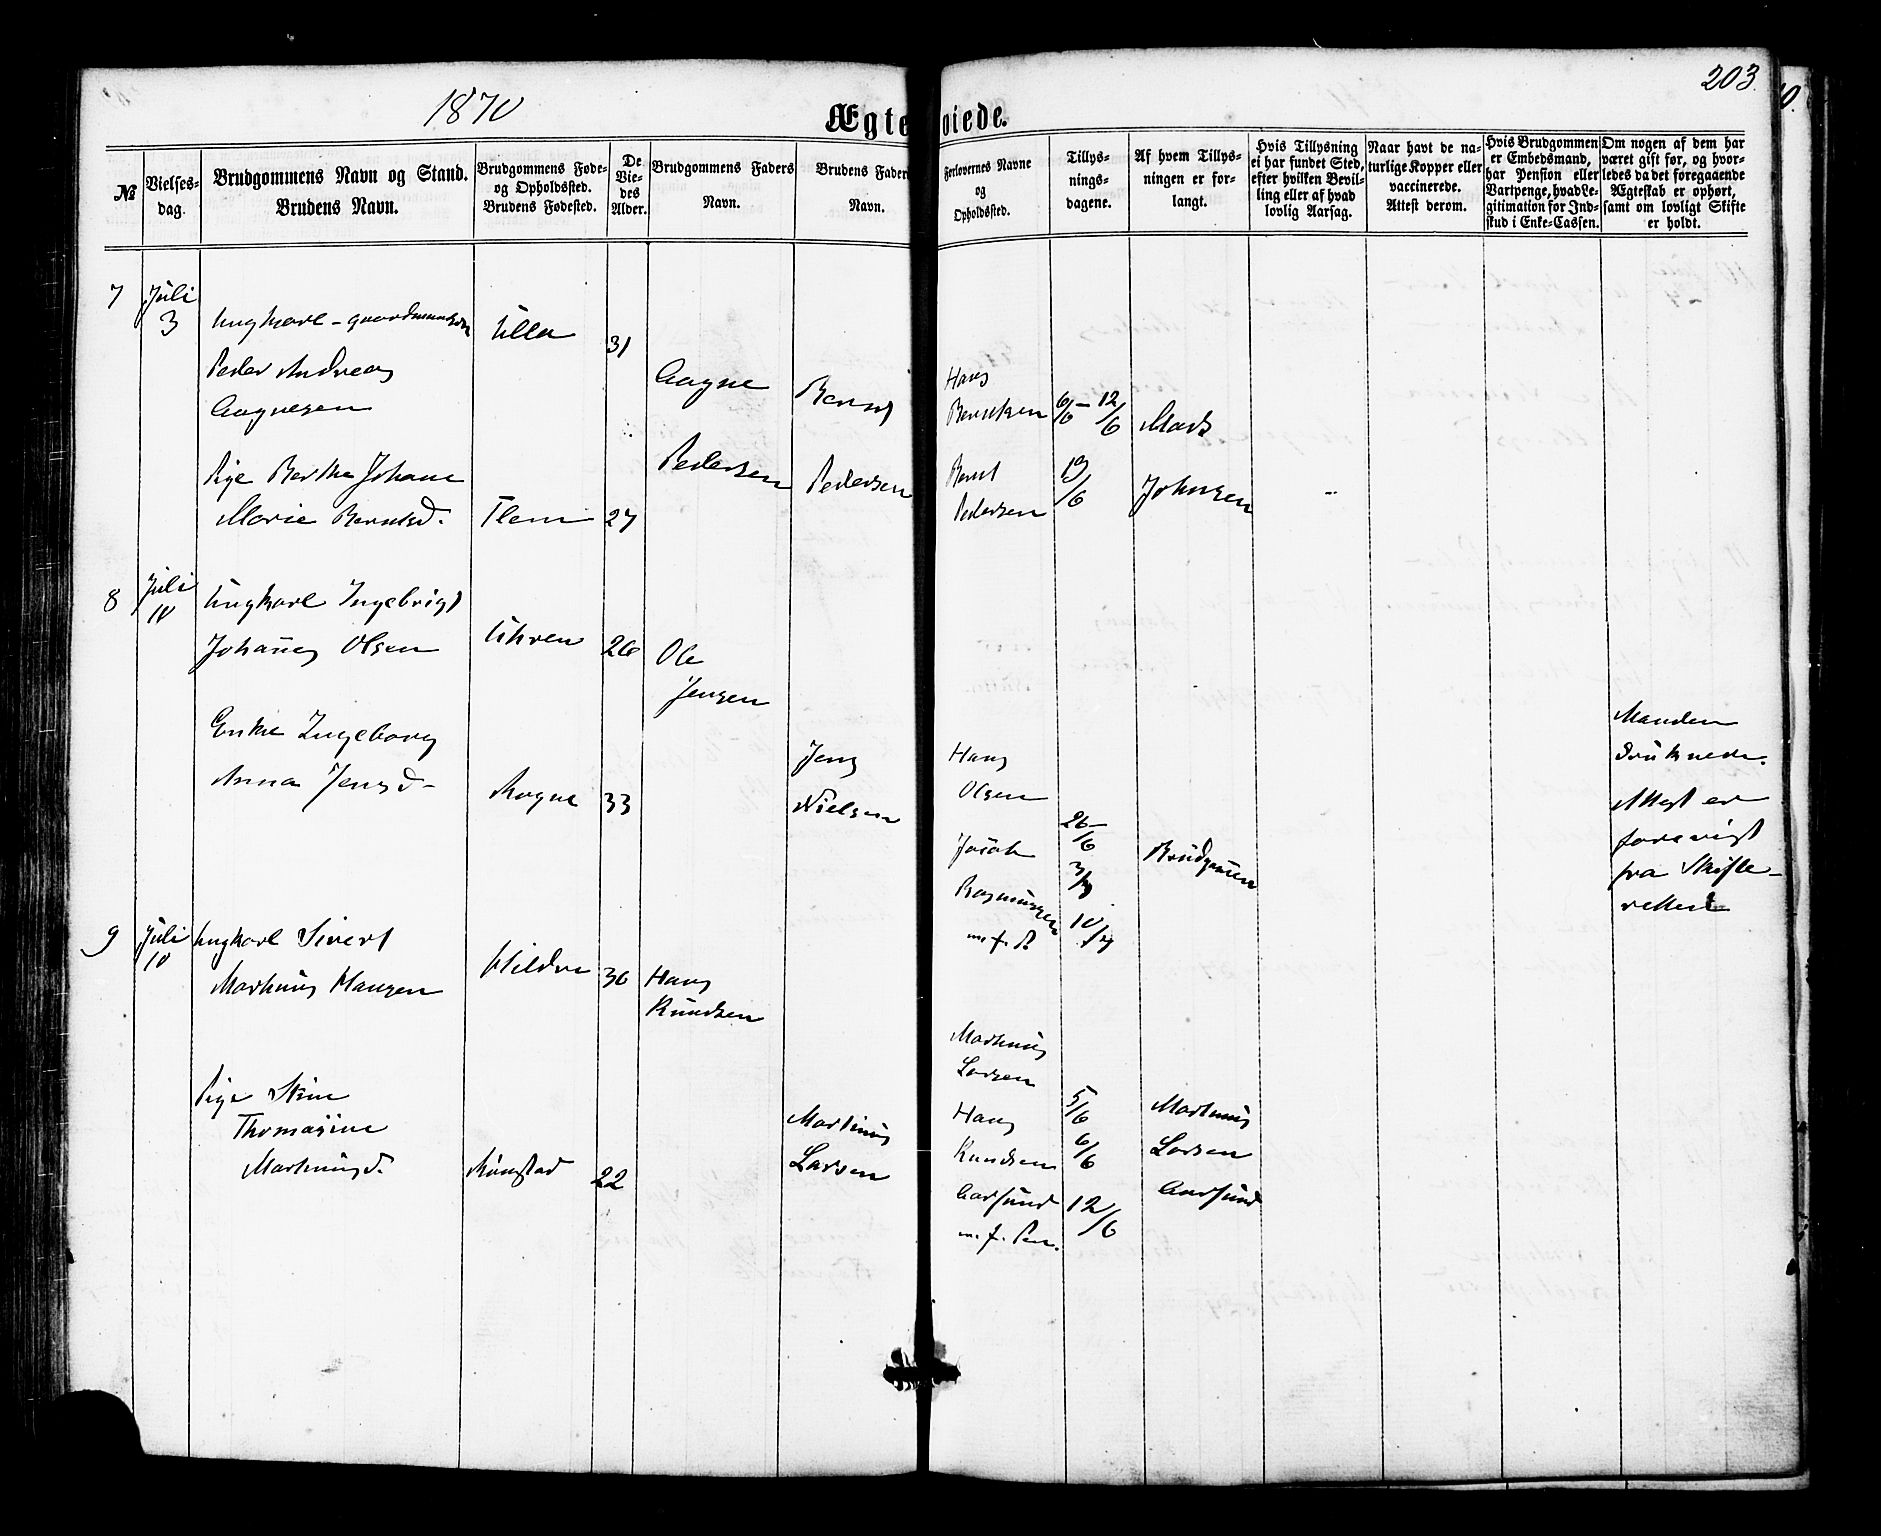 1870
203.
Ægte
viede.
№
Vielses-
dag.
Brudgommens Navn og Stand.
Brudens Navn.
Brudgommens Føde-
og Opholdssted.
Brudens Fødested.
De
Vie-
des
Alder.
Brudgommens Faders
Navn.
Brudens Faders
Navn.
Forlovernes Navne
og
Opholdssted.
Tillys-
nings-
dagene.
Af hvem Tillys-
ningen er for-
langt.
Hvis Tillysning
ei har fundet Sted,
efter hvilken Bevil-
ling eller af hvad
lovlig Aarsag.
Naar havt de na-
turlige Kopper eller
vaccinerede.
Attest derom.
Hvis Brudgommen
er Embedsmand,
har Pension eller
Vartpenge, hvad Le-
gitimation for Ind-
skud i Enke-Cassen.
Om nogen af dem har
været gift før, og hvor-
ledes da det foregaaende
Ægteskab er ophørt,
samt om lovligt Skifte
er holdt.
7
Juli
3
Ungkarl - gaardmandsøn
Peder Andreas
Aagnesen
Ulla
31
Aagne
Pedersen
Pige Berthe Johane
Marie Berntsd.
Flem
27
Bernt
Pedersen
Hans
Berntsen
Bernt
Pedersen
6/6 - 12/6
19/6
Mads
Johnsen
8
Juli
10
Ungkarl Ingebrigt
Johannes Olsen
Uhren
26
Ole
Jensen
Enke Ingeborg
Anna Jensd-
Rogne
33
Jens
Nielsen
Hans
Olsen
Jacob
Rasmussen
m. f. P.
26-/6
3/7
10/7
Brudgommen
Manden
druknede.
Attest er
forevist
fra Skifte-
retten
9
Juli
10
Ungkarl Sivert
Martinus Hansen
Hildre
30
Hans
Knudsen
Pige Stine
Thomasine
Martinusd.
Rønstad
22
Martinus
Larsen
Martinus
Larsen
Hans
Knudsen
Aarsund
m. f. Pen.
5/6
6/6
12/6
Martinus
Larsen
Aarsund